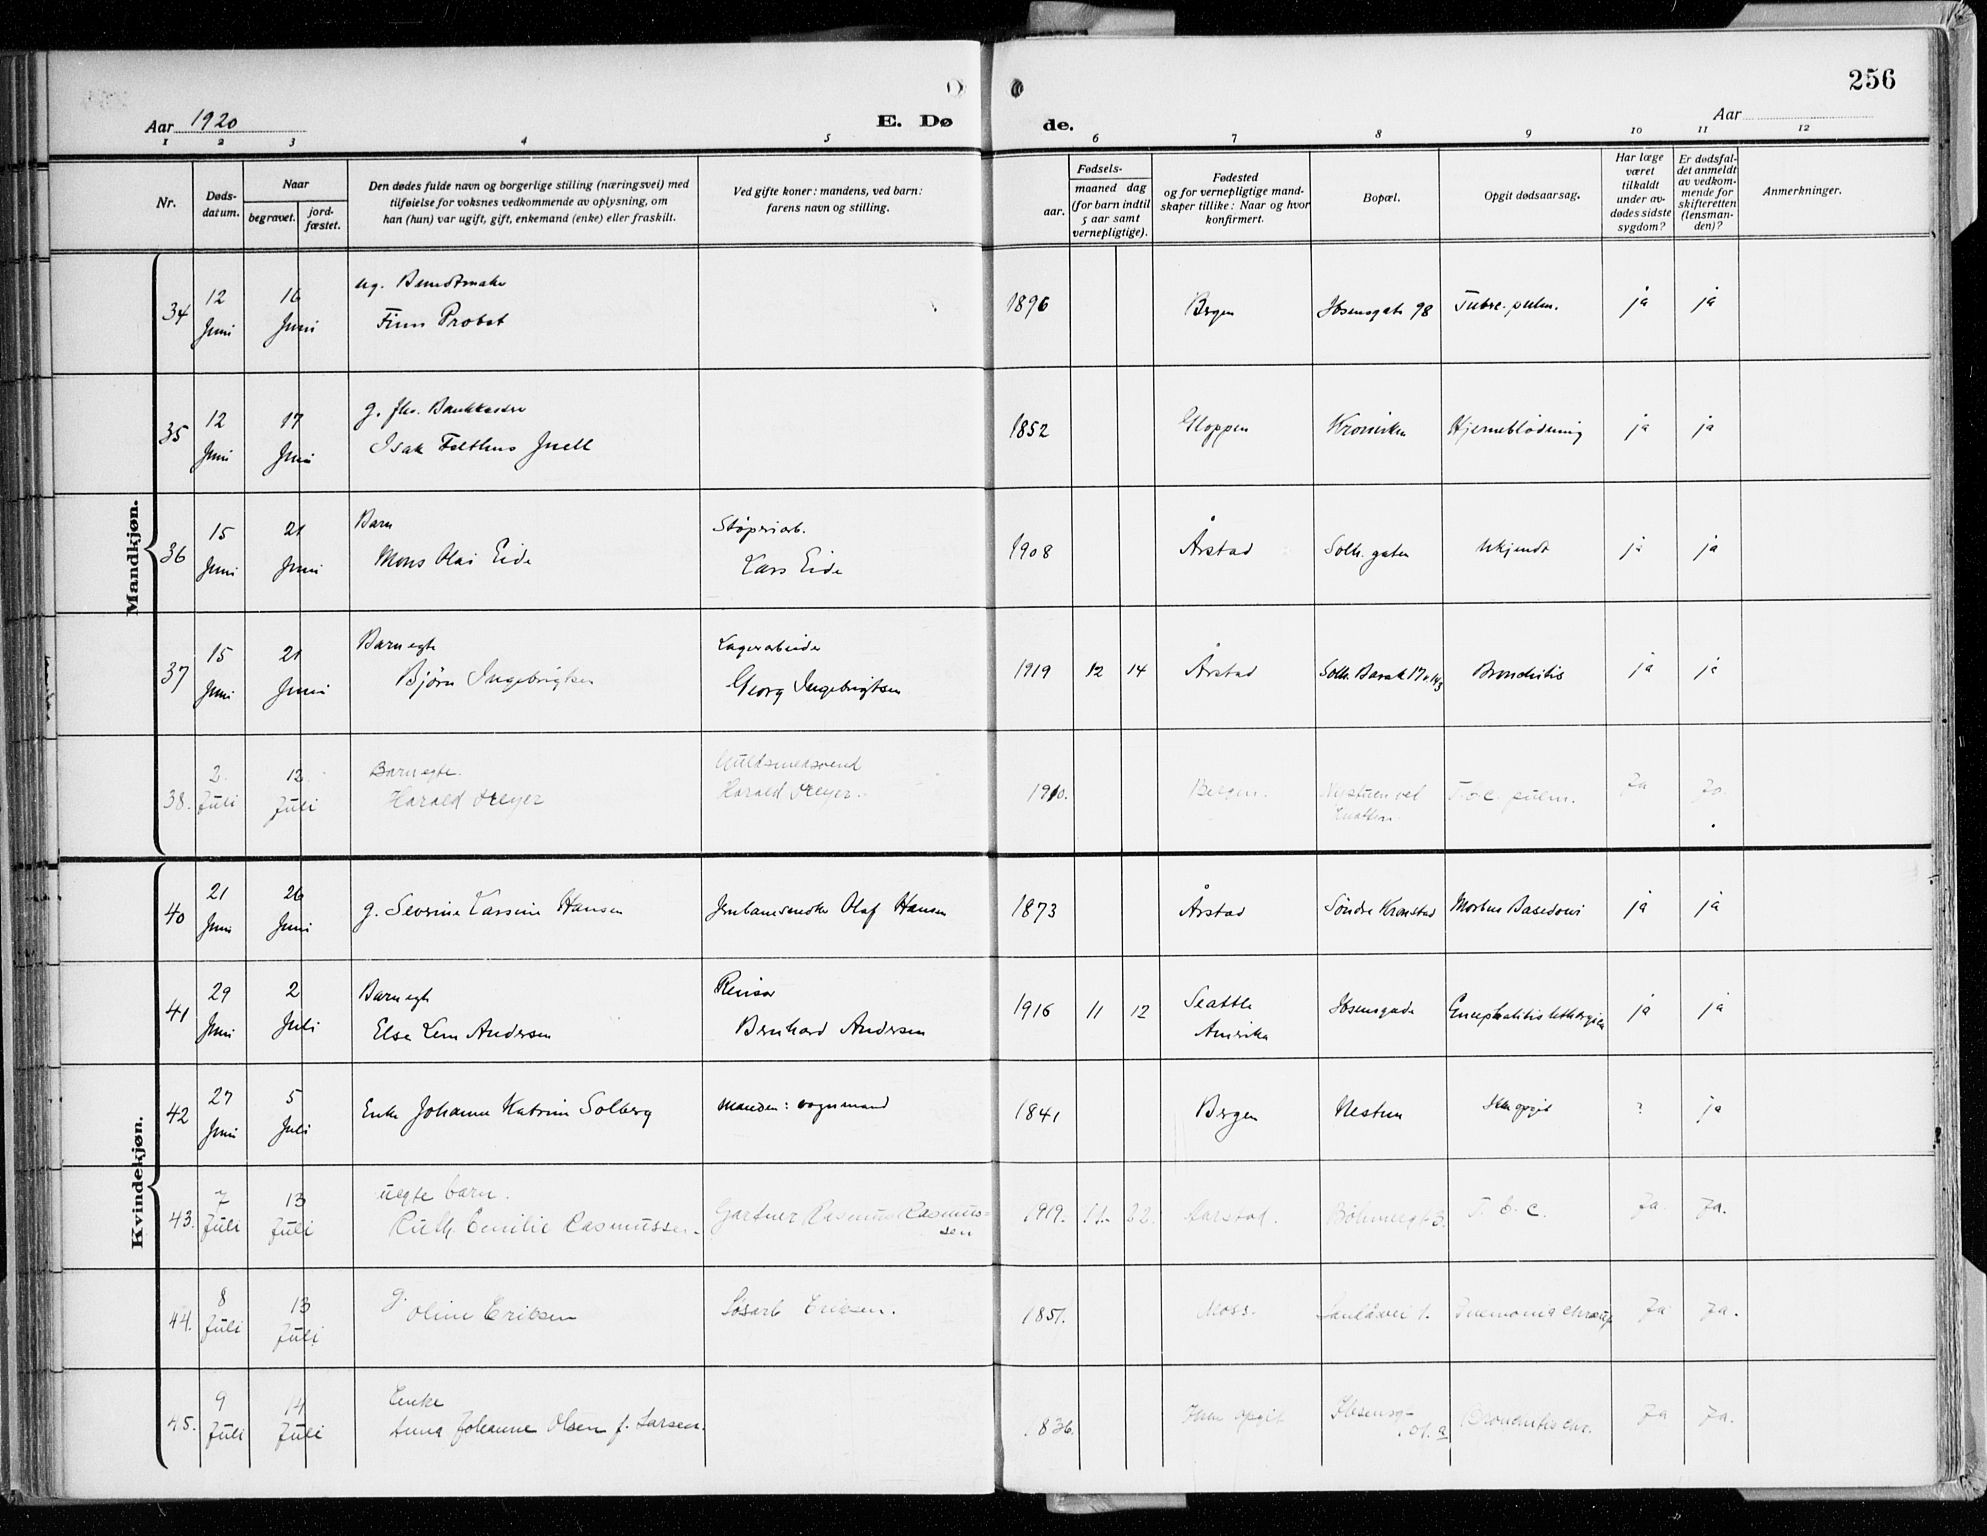 256
Aar 1920
E. Dø
de.
Aar
1 2 3 4 5 6 7 8 9 10 11 12
Nr.
Døds-
datum.
Naar
begravet.
jord-
fæstet.
Den dødes fulde navn og borgerlige stilling (næringsvei) med
tilføielse for voksnes vedkommende av oplysning, om
han (hun) var ugift, gift, enkemand (enke) eller fraskilt.
Ved gifte koner: mandens, ved barn:
farens navn og stilling.
Fødsels-
aar.
maaned dag
(for barn indtil
5 aar samt
vernepligtige).
Fødested
og for vernepligtige mand-
skaper tillike: Naar og hvor
konfirmert.
Bopæl.
Opgit dødsaarsag.
Har læge
været
tilkaldt
under av-
dødes sidste
sygdom?
Er dødsfal-
det anmeldt
av vedkom-
mende for
skifteretten
(lensman-
den)?
Anmerkninger.
Mandkjøn.
34 12 Juni 16 Juni
ug.
Finn Probst
1896 Bergen Ibsensgate 98 Tubrc. pulm. ja ja
35 12 Juni 17 Juni
g. fhv. Bankkasser
Isak Juell
1852 Gloppen Kroniken Hjerneblødning ja ja
36 15 Juni 21 Juni
Barn
Mons Olai Eide
Støperiarb.
Lars Eide
1908 Årstad Solh. gaten Ukjendt ja ja
37 15 Juni 21 Juni
Barn egte
Bjørn Ingebrigtsen
Lagerarbeider
Georg Ingebrigtsen
1919 12 14 Årstad Solh. Barak 17 Bronchitis ja ja
38. 2. Juli 12 Juli
Barn egte.
Harald Dreyer
Guldsmedsvend
Harald Dreyer.
1910. Bergen. Nystuen ved
Knatten.
T.b.c. pulm. Ja Ja.
Kvindekjøn.
40 21 Juni 26 Juni
g. Severine Larsine Hansen
Jernbanesnedker Olaf Hansen
1873 Årstad Søndre Kronstad Morbus Basedowi ja ja
41 29 Juni 2 Juli
Barn egte
Else Lem Andersen
Revisor
Bernhard Andersen
1916 11 12 Seattle
Amerika
Ibsensgade Encephalitis lethargica ja ja
42 27 Juni 5 Juli
Enke Johanne Katrine Solberg
Manden: vognmand
1841 Bergen Nestun Ikke opgit ? ja
43. 7 Juli 13 Juli
uegte barn.
Ruth Emilie Rasmussen.
Gartner Rasmus Rasmus-
sen
1919. 11. 22. Aarstad. Böhmergt 3. T. b. c. Ja. Ja.
44. 8 Juli 13 Juli
g.
Oline Eriksen
Løsarb Eriksen.
1851. Moss. 1. Ja Ja.
45. 9 Juli 14 Juli
Enke
Anna Johanne Olsen f. Larsen.
1836. Ikke opgit Ibsensg-
101. a
Bronchitis chr. Ja Ja.